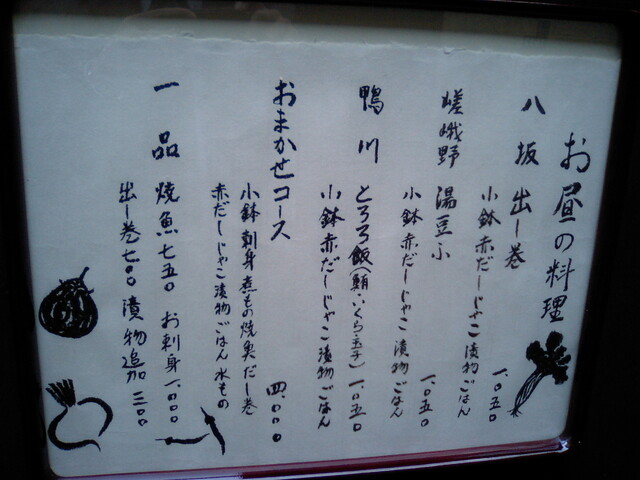 お昼の料理
八坂 出し巻
小鉢 赤だし じゃこ 漬物 ごはん 一、〇五〇
嵯峨野 湯豆ふ
小鉢 赤だし じゃこ 漬物 ごはん 一、〇五〇
鴨川 とろろ飯(鮪・いくら・玉子) 一、〇五〇
小鉢 赤だし じゃこ 漬物 ごはん
おまかせコース
小鉢 刺身 煮もの 焼魚 だし巻 四、〇〇〇
赤だし じゃこ 漬物 ごはん 水もの
一品 焼魚 七五〇 お刺身 一、〇〇〇
出し巻 七〇〇 漬物追加 三〇〇